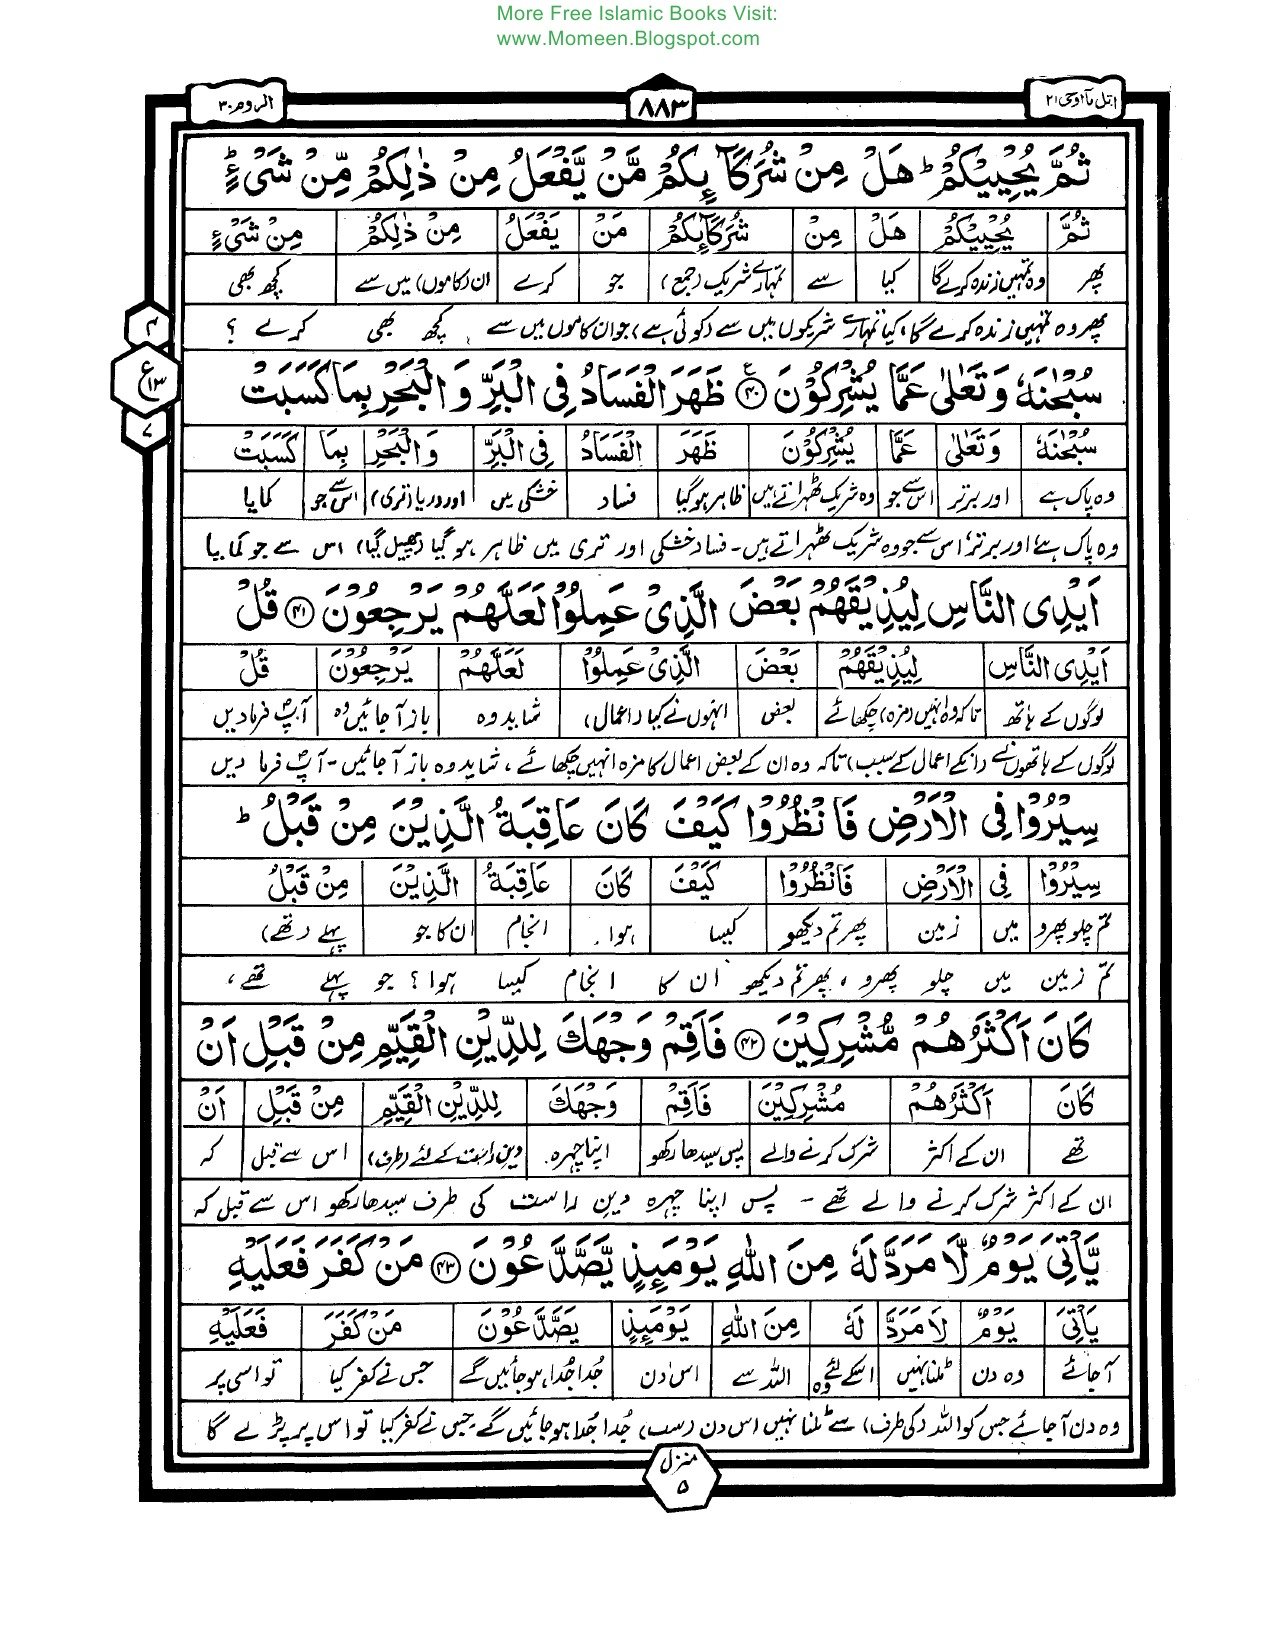 More Free Islamic Books Visit:
www.Momeen.Blogspot.com
اتل مآاوحی ۲۱ ۸۸۳ الروم ۳۰
ثُمَّ یُحْیِیْكُمْ ؕ هَلْ مِنْ شُرَكَآىِٕكُمْ مَّنْ یَّفْعَلُ مِنْ ذٰلِكُمْ مِّنْ شَیْءٍ ؕ
ثُمَّ یُحْیِیْكُمْ هَلْ مِنْ شُرَكَآىِٕكُمْ مَنْ یَفْعَلُ مِنْ ذٰلِكُمْ مِنْ شَیْءٍ
پھر وہ تمہیں زندہ کرے گا کیا سے تمہارے شریک (جمع) جو کرے ان (کاموں) میں سے کچھ بھی
پھر وہ تمہیں زندہ کرے گا، کیا تمہارے شریکوں میں سے (کوئی ہے) جو ان کاموں میں سے کچھ بھی کرے ؟
سُبْحٰنَهٗ وَ تَعٰلٰى عَمَّا یُشْرِكُوْنَ ۴۰ ظَهَرَ الْفَسَادُ فِی الْبَرِّ وَ الْبَحْرِ بِمَا كَسَبَتْ
سُبْحٰنَهٗ وَتَعٰلٰى عَمَّا یُشْرِكُوْنَ ظَهَرَ الْفَسَادُ فِی الْبَرِّ وَالْبَحْرِ بِمَا كَسَبَتْ
وہ پاک ہے اور برتر اس سے جو وہ شریک ٹھہراتے ہیں ظاہر ہو گیا فساد خشکی میں اور دریا (تری) اس سے جو کمایا
وہ پاک ہے اور برتر اس سے جو وہ شریک ٹھہراتے ہیں۔ فساد خشکی اور تری میں ظاہر ہو گیا (پھیل گیا) اس سے جو کمایا
اَیْدِی النَّاسِ لِیُذِیْقَهُمْ بَعْضَ الَّذِیْ عَمِلُوْا لَعَلَّهُمْ یَرْجِعُوْنَ ۴۱ قُلْ
اَیْدِی النَّاسِ لِیُذِیْقَهُمْ بَعْضَ الَّذِیْ عَمِلُوْا لَعَلَّهُمْ یَرْجِعُوْنَ قُلْ
لوگوں کے ہاتھ تاکہ وہ انہیں (مزہ) چکھائے بعض انہوں نے کیا (اعمال) شاید وہ باز آ جائیں وہ آپؐ فرما دیں
لوگوں کے ہاتھوں نے (انکے اعمال کے سبب) تاکہ وہ ان کے بعض اعمال کا مزہ انہیں چکھائے، شاید وہ باز آ جائیں۔ آپؐ فرما دیں
سِیْرُوْا فِی الْاَرْضِ فَانْظُرُوْا كَیْفَ كَانَ عَاقِبَةُ الَّذِیْنَ مِنْ قَبْلُ ؕ
سِیْرُوْا فِی الْاَرْضِ فَانْظُرُوْا كَیْفَ كَانَ عَاقِبَةُ الَّذِیْنَ مِنْ قَبْلُ
تم چلو پھرو میں زمین پھر تم دیکھو کیسا ہوا انجام ان کا جو پہلے (تھے)
تم زمین میں چلو پھرو ، پھر تم دیکھو ان کا انجام کیسا ہوا ؟ جو پہلے تھے ،
كَانَ اَكْثَرُهُمْ مُّشْرِكِیْنَ ۴۲ فَاَقِمْ وَجْهَكَ لِلدِّیْنِ الْقَیِّمِ مِنْ قَبْلِ اَنْ
كَانَ اَكْثَرُهُمْ مُشْرِكِیْنَ فَاَقِمْ وَجْهَكَ لِلدِّیْنِ الْقَیِّمِ مِنْ قَبْلِ اَنْ
تھے ان کے اکثر شرک کرنے والے پس سیدھا رکھو اپنا چہرہ دین راست کے لئے (طرف) اس سے قبل کہ
ان کے اکثر شرک کرنے والے تھے ۔ پس اپنا چہرہ دین راست کی طرف سیدھا رکھو اس سے قبل کہ
یَّاْتِیَ یَوْمٌ لَّا مَرَدَّ لَهٗ مِنَ اللّٰهِ یَوْمَىِٕذٍ یَّصَّدَّعُوْنَ ۴۳ مَنْ كَفَرَ فَعَلَیْهِ
یَاْتِیَ یَوْمٌ لَا مَرَدَّ لَهٗ مِنَ اللّٰهِ یَوْمَىِٕذٍ یَصَّدَّعُوْنَ مَنْ كَفَرَ فَعَلَیْهِ
آ جائے وہ دن ٹلنا نہیں اسکے لئے وہ اللہ سے اس دن جُدا جُدا ہو جائیں گے جس نے کفر کیا تو اسی پر
وہ دن آ جائے جس کو اللہ (کی طرف) سے ٹلنا نہیں اس دن (سب) جُدا جُدا ہو جائیں گے جس نے کفر کیا تو اس پر پڑے گا
۴
ع
۱۳
۷
منزل
۵